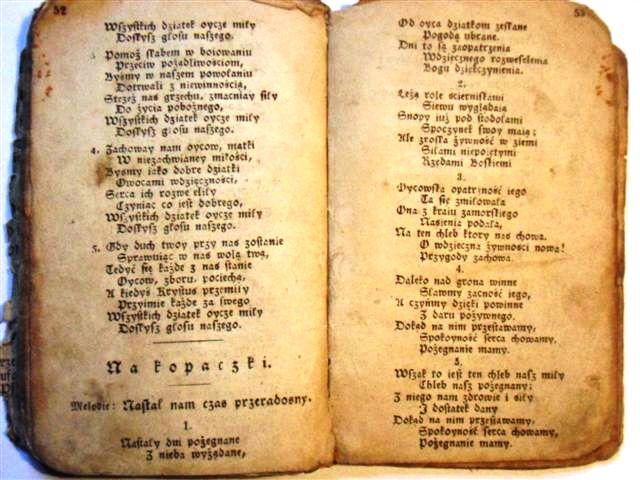 52
Wszystkich dziatek oycze miły
Dosłysz głosu naszego.
3. Pomoż słabem w boiowaniu
Przeciw pożądliwościom,
Byśmy w naszem powołaniu
Dotrwali z niewinnością,
Strzeż nas grzechu, zmacniay siły
Do życia pobożnego,
Wszystkich dziatek oycze miły
Dosłysz głosu naszego.
4. Zachoway nam oycow, matki
W niezachwianey miłości,
Byśmy iako dobre dziatki
Owocami wdzięczności,
Serca ich rozweselili
Czyniąc co jest dobrego,
Wszystkich dziatek oycze miły
Dosłysz głosu naszego.
5. Gdy duch twoy przy nas zostanie
Sprawuiąc w nas wolą twą,
Tedyć się każde z nas stanie
Oycow, zboru, pociechą,
A kiedyś Krystus przemiły
Przyimie każde za swego
Wszystkich dziatek oycze miły
Dosłysz głosu naszego.
Na kopaczki.
Melodie: Nastał nam czas przeradosny.
1.
Nastały dni pożegnane
Z nieba wyżądane,
53
Od oyca dziatkom zesłane
Pogodą ubrane.
Dni to są zaopatrzenia
Wdzięcznego rozweselenia
Bogu dziękczynienia.
2.
Leżą role scierniskami
Siewu wyglądaią
Snopy iuż pod stodołami
Spoczynek swoy maią;
Ale zrosła żywność w ziemi
Siłami niepoiętymi
Rzędami Boskiemi
3.
Oycowska opatrzność iego
Ta się zmiłowała
Ona z kraiu zamorskiego
Nasienia podała,
Na ten chleb ktory nas chowa.
O wdzięczna żywności nowa!
Przygody zachowa.
4.
Daleko nad grona winne
Sławmy zacność iego,
A czyńmy dzięki powinne
Z daru pożywnego.
Dokąd na nim przestawamy,
Spokoyność serca chowamy,
Pożegnanie mamy.
5.
Wszak to iest ten chleb nasz miły
Chleb nasz pożegnany;
Z niego nam zdrowie i siły
I dostatek dany
Dokąd na nim przestawamy,
Spokoyność serca chowamy,
Pożegnanie mamy.